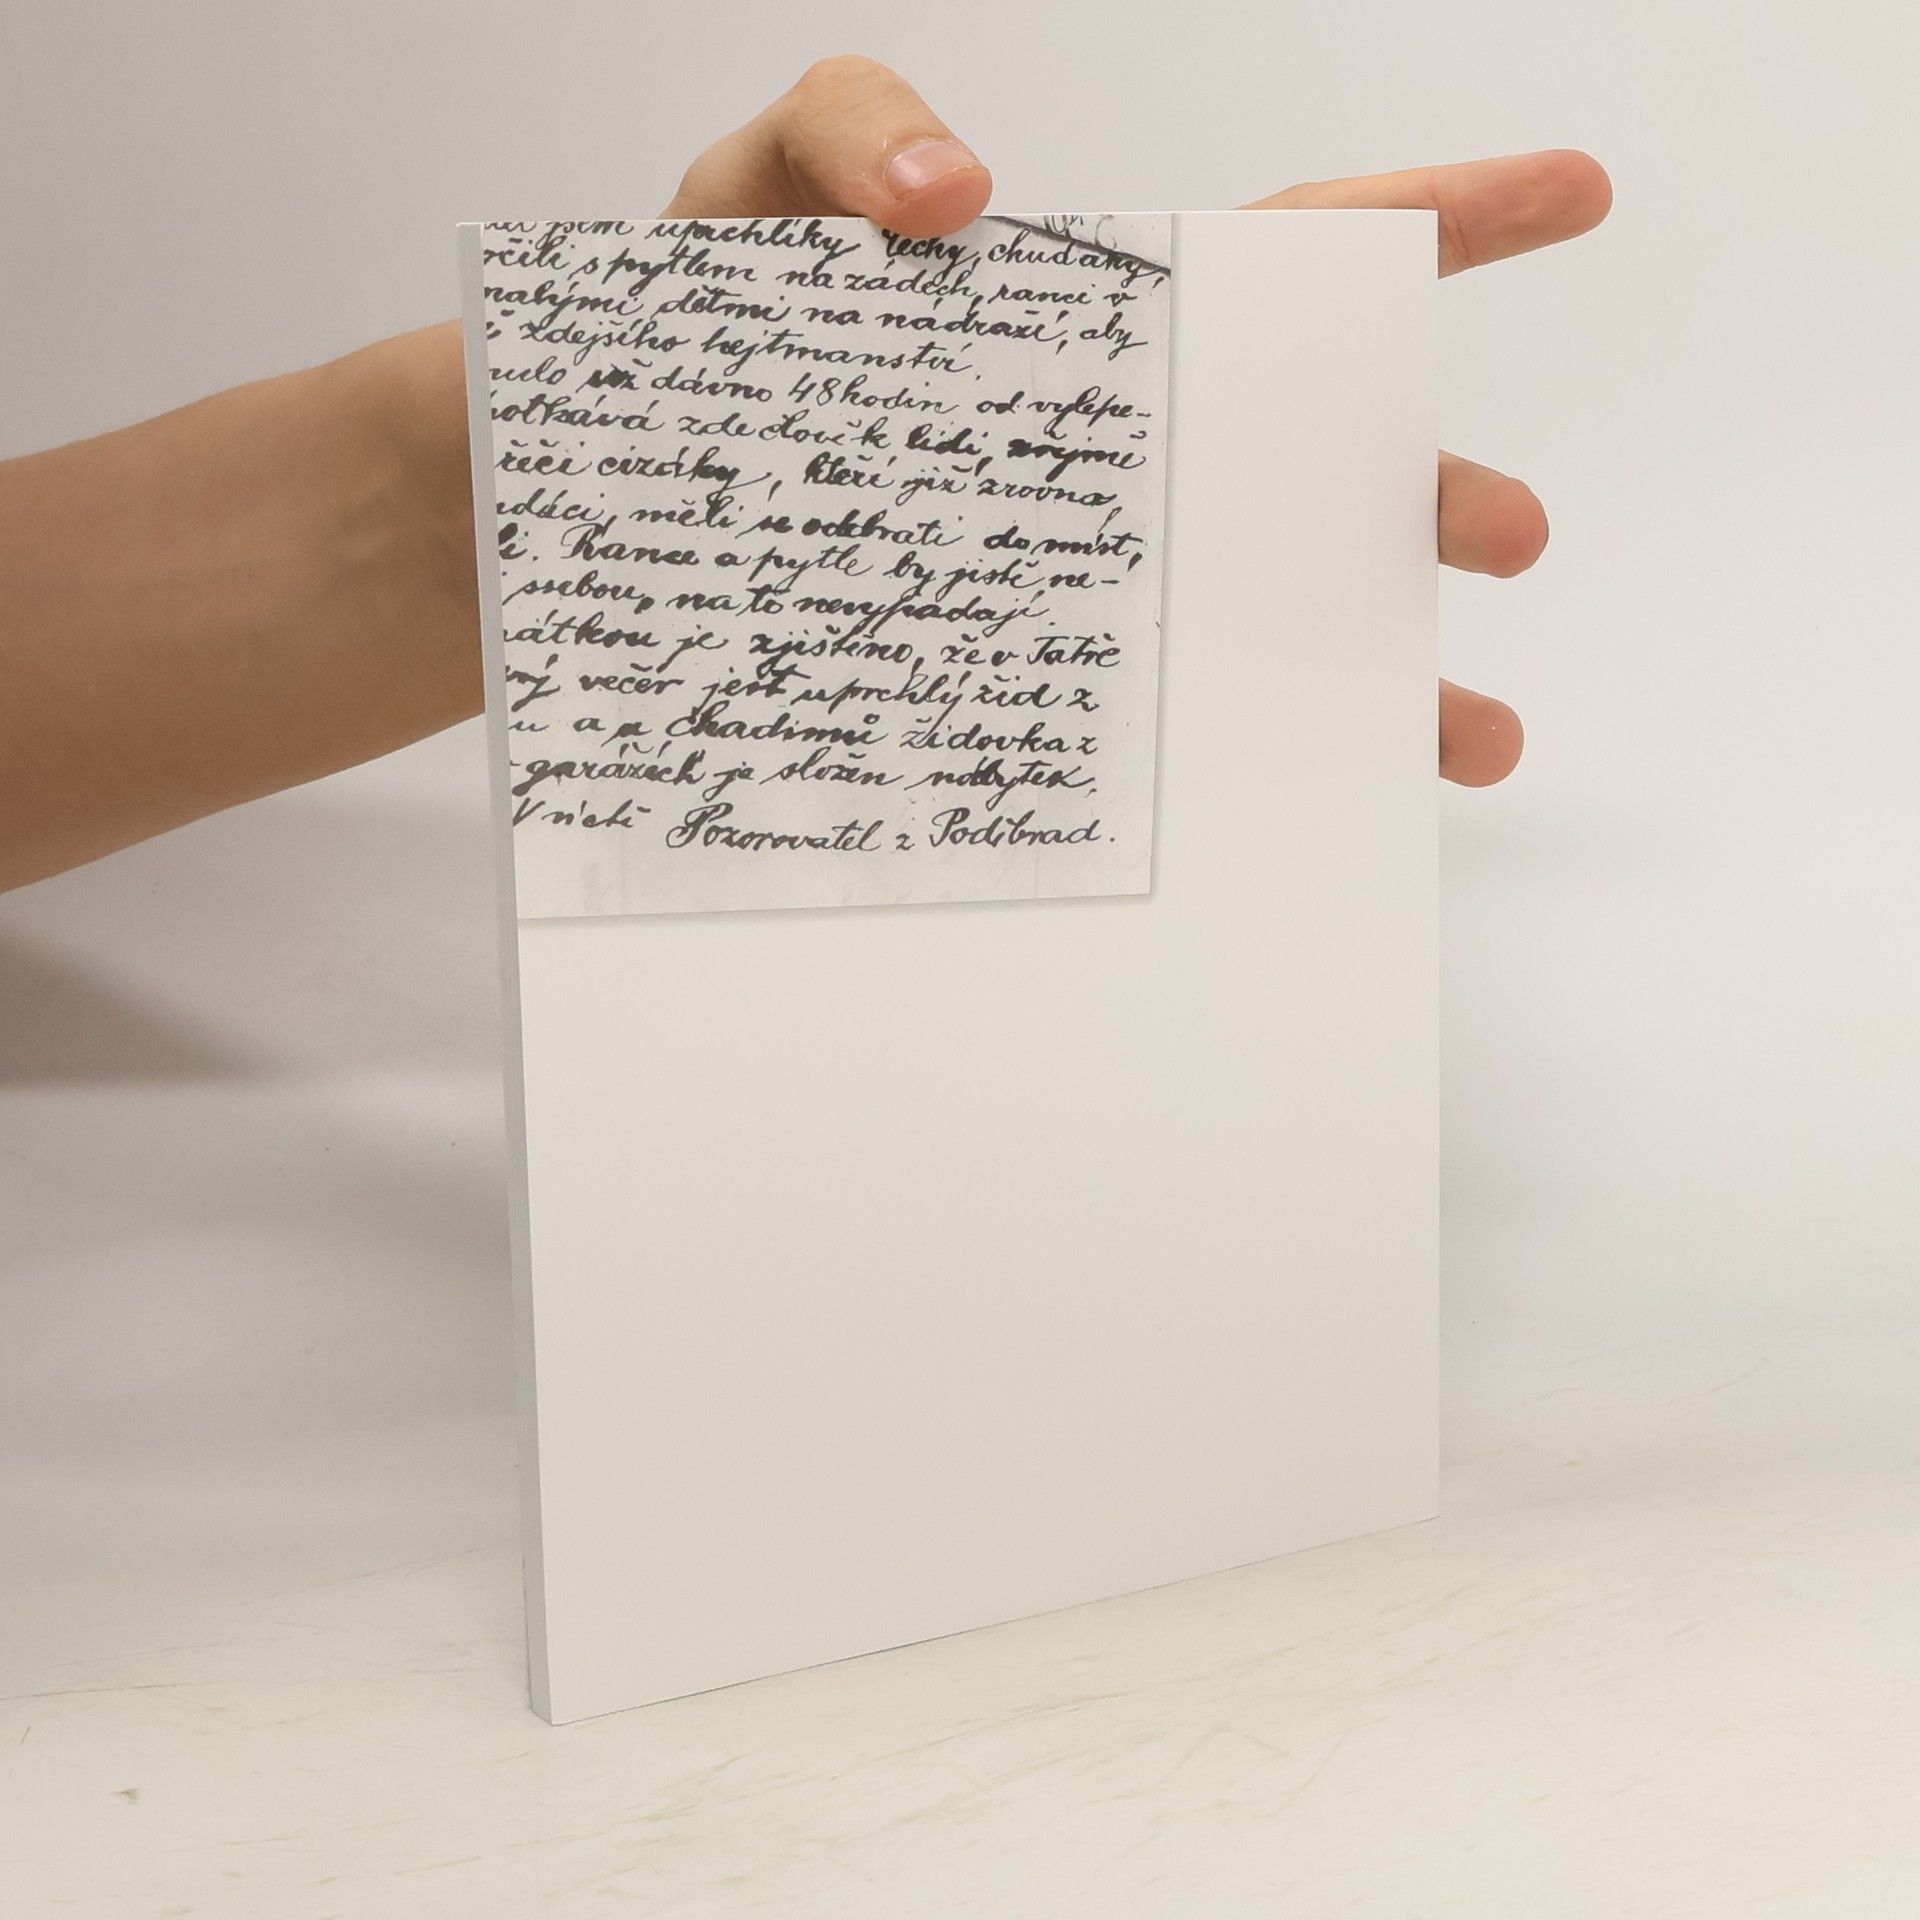 jsem uprchlíky čechy, chuďasy,
s pytlem na zádech, ranci v
malými dětmi na nádraží, aby
zdejšího hejtmanství.
už dávno 48 hodin od vylepe-
potkává zde člověk lidi, zřejmě
řeči cizáky, kteří již zrovna,
měli se odebrati do míst,
Rance a pytle by jistě ne-
ssebou, na to nevypadají.
je zjištěno, že v Tatře
večer jest uprchlý žid z
u a u Chadimů židovka z
garážích je složen nábytek.
V úctě Pozorovatel z Poděbrad.